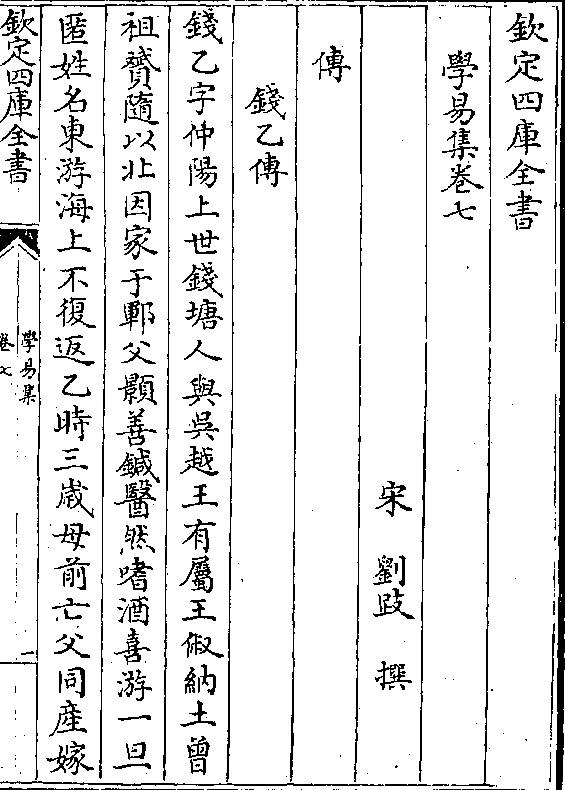 欽定四庫全書
學易集卷七
宋 劉跂 撰
傳
錢乙傳
錢乙字仲陽上世錢塘人與吳越王有屬王俶納土曾
祖贇隨以北因家于鄆父顥善鍼醫然嗜酒喜游一旦
匿姓名東游海上不復返乙時三歲母前亡父同産嫁
欽定四庫全書
學易集
卷七
一